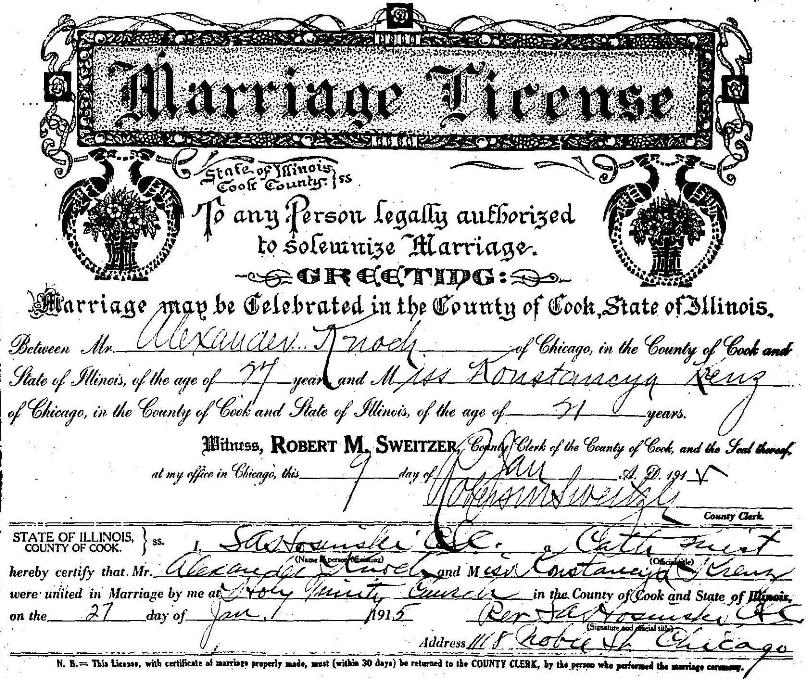 Marriage License
State of Illinois,
Cook County. } ss
To any Person legally authorized
to solemnize Marriage.
GREETING:
Marriage may be Celebrated in the County of Cook, State of Illinois.
Between Mr. Alexander Knoch of Chicago, in the County of Cook and
State of Illinois, of the age of 27 years and Miss Konstancya Renz
of Chicago, in the County of Cook and State of Illinois, of the age of 21 years.
Witness, ROBERT M. SWEITZER, County Clerk of the County of Cook, and the Seal thereof,
at my office in Chicago, this 9 day of Jan A. D. 191
Robert M Sweitzer
County Clerk.
STATE OF ILLINOIS,
COUNTY OF COOK. } ss. I, C.S.C. a Cath
(Official title)
hereby certify that Mr. Alexander Knoch and Miss Konstancya
were united in Marriage by me at Holy Trinity Church in the County of Cook and State of Illinois,
on the 27 day of Jan. 1915 Rev.
(Signature and official title)
Address 1118 Noble St. Chicago
N. B.— This License, with certificate of marriage properly made, must (within 30 days) be returned to the COUNTY CLERK, by the person who performed the marriage ceremony.